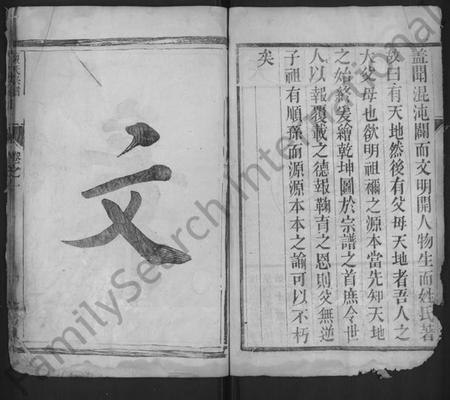 蓋聞混沌闢而文明開人物生而姓氏著
故曰有天地然後有父母天地者吾人之
大父母也欲明祖禰之源本當先知天地
之始終爰繪乾坤圖於宗譜之首庶令世
人以報覆載之德報鞠育之恩則父無逆
子祖有順孫而源源本本之諭可以不朽
矣
文
卷之一
FamilySearch International